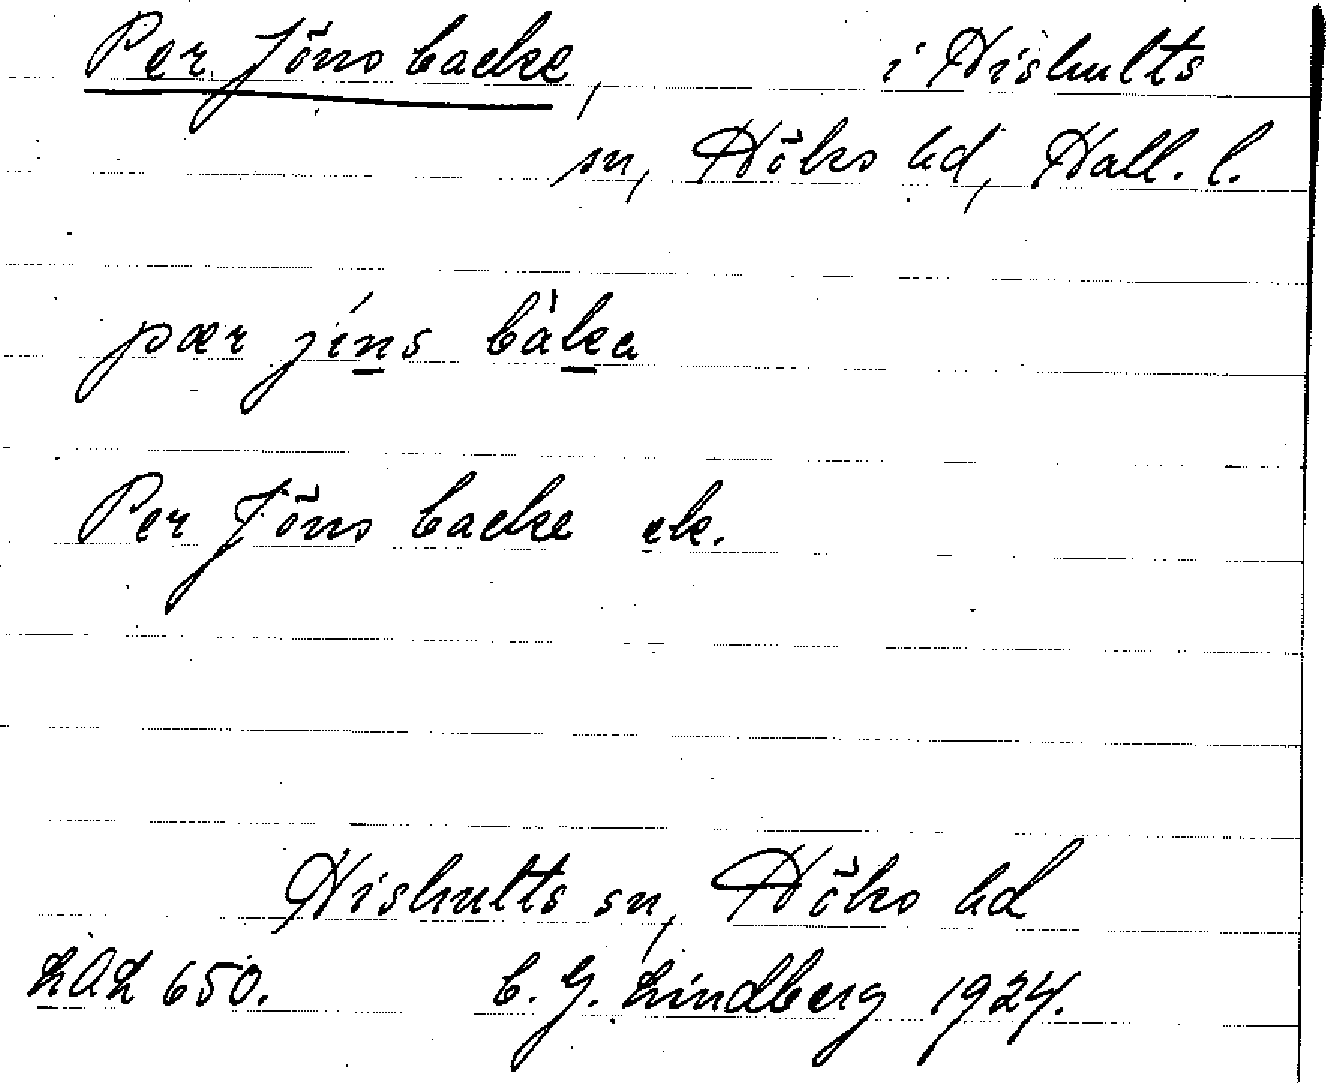 Per Jöns backe, i Hishults
sn, Höks hd, Hall. l.
pær jíns bàka
Per Jöns backe ek.
Hishults sn, Höks hd
LAL 650. C. G. Lindberg 1924.